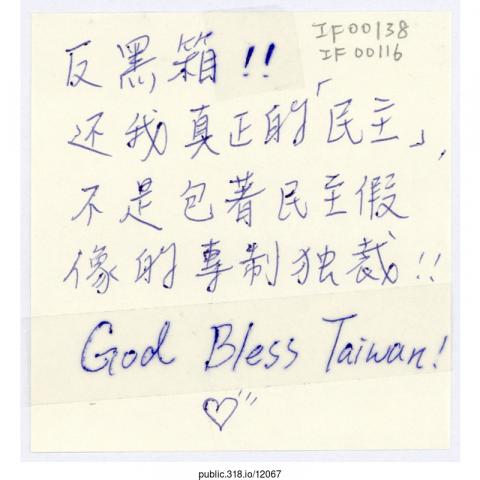 IF00138
IF00116
反黑箱!!
还我真正的「民主」,
不是包著民主假
像的專制独裁!!
God Bless Taiwan!
public.318.io/12067